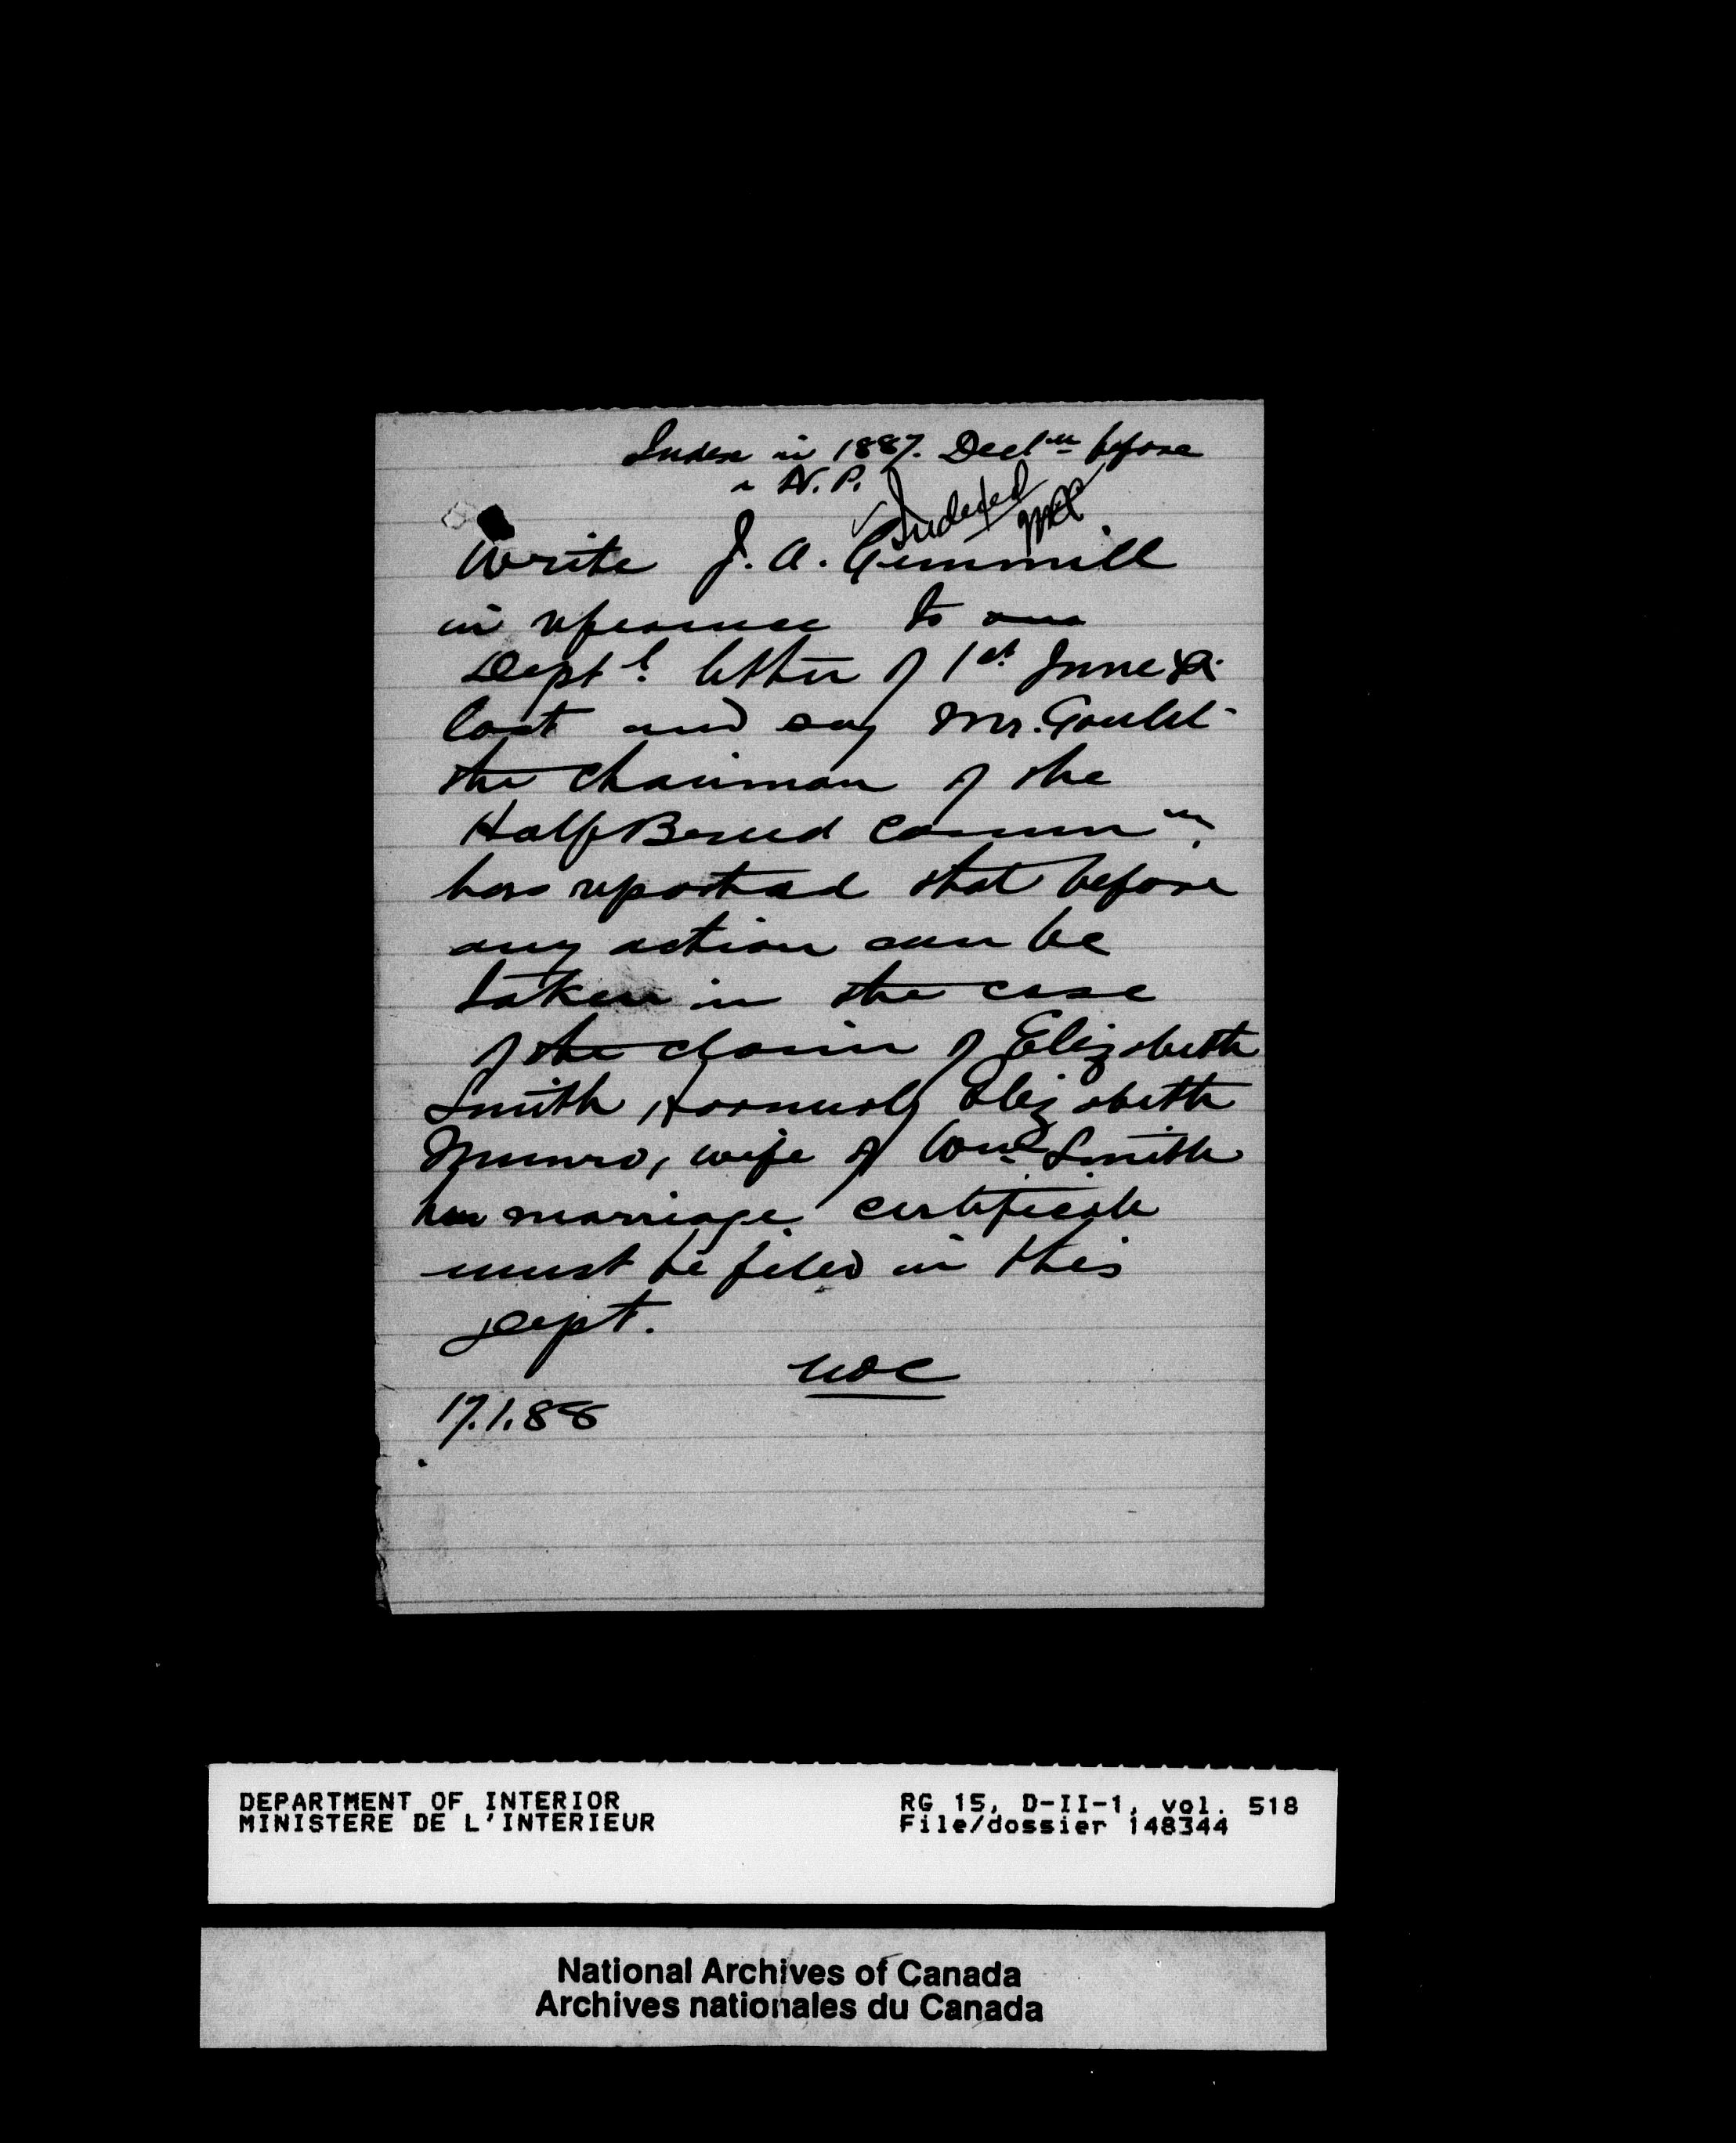 Index in 1887. Decl<sup>n</sup> before
a N.P.
Indexed
Write J. A. Gemmill
in reference to our
Dept<sup>l</sup> letter of 1<sup>st</sup> June
last and say Mr. Goulet
the Chairman of the
Half Breed Comm<sup>n</sup>
has reported that before
any action can be
taken in the case
of the claim of Elizabeth
Smith, formerly Elizabeth
Munro, wife of Wm Smith
her marriage certificate
must be filed in this
Dept.
17.1.88
DEPARTMENT OF INTERIOR
MINISTERE DE L'INTERIEUR
RG 15, D-II-1, vol. 518
File/dossier 148344
National Archives of Canada
Archives nationales du Canada